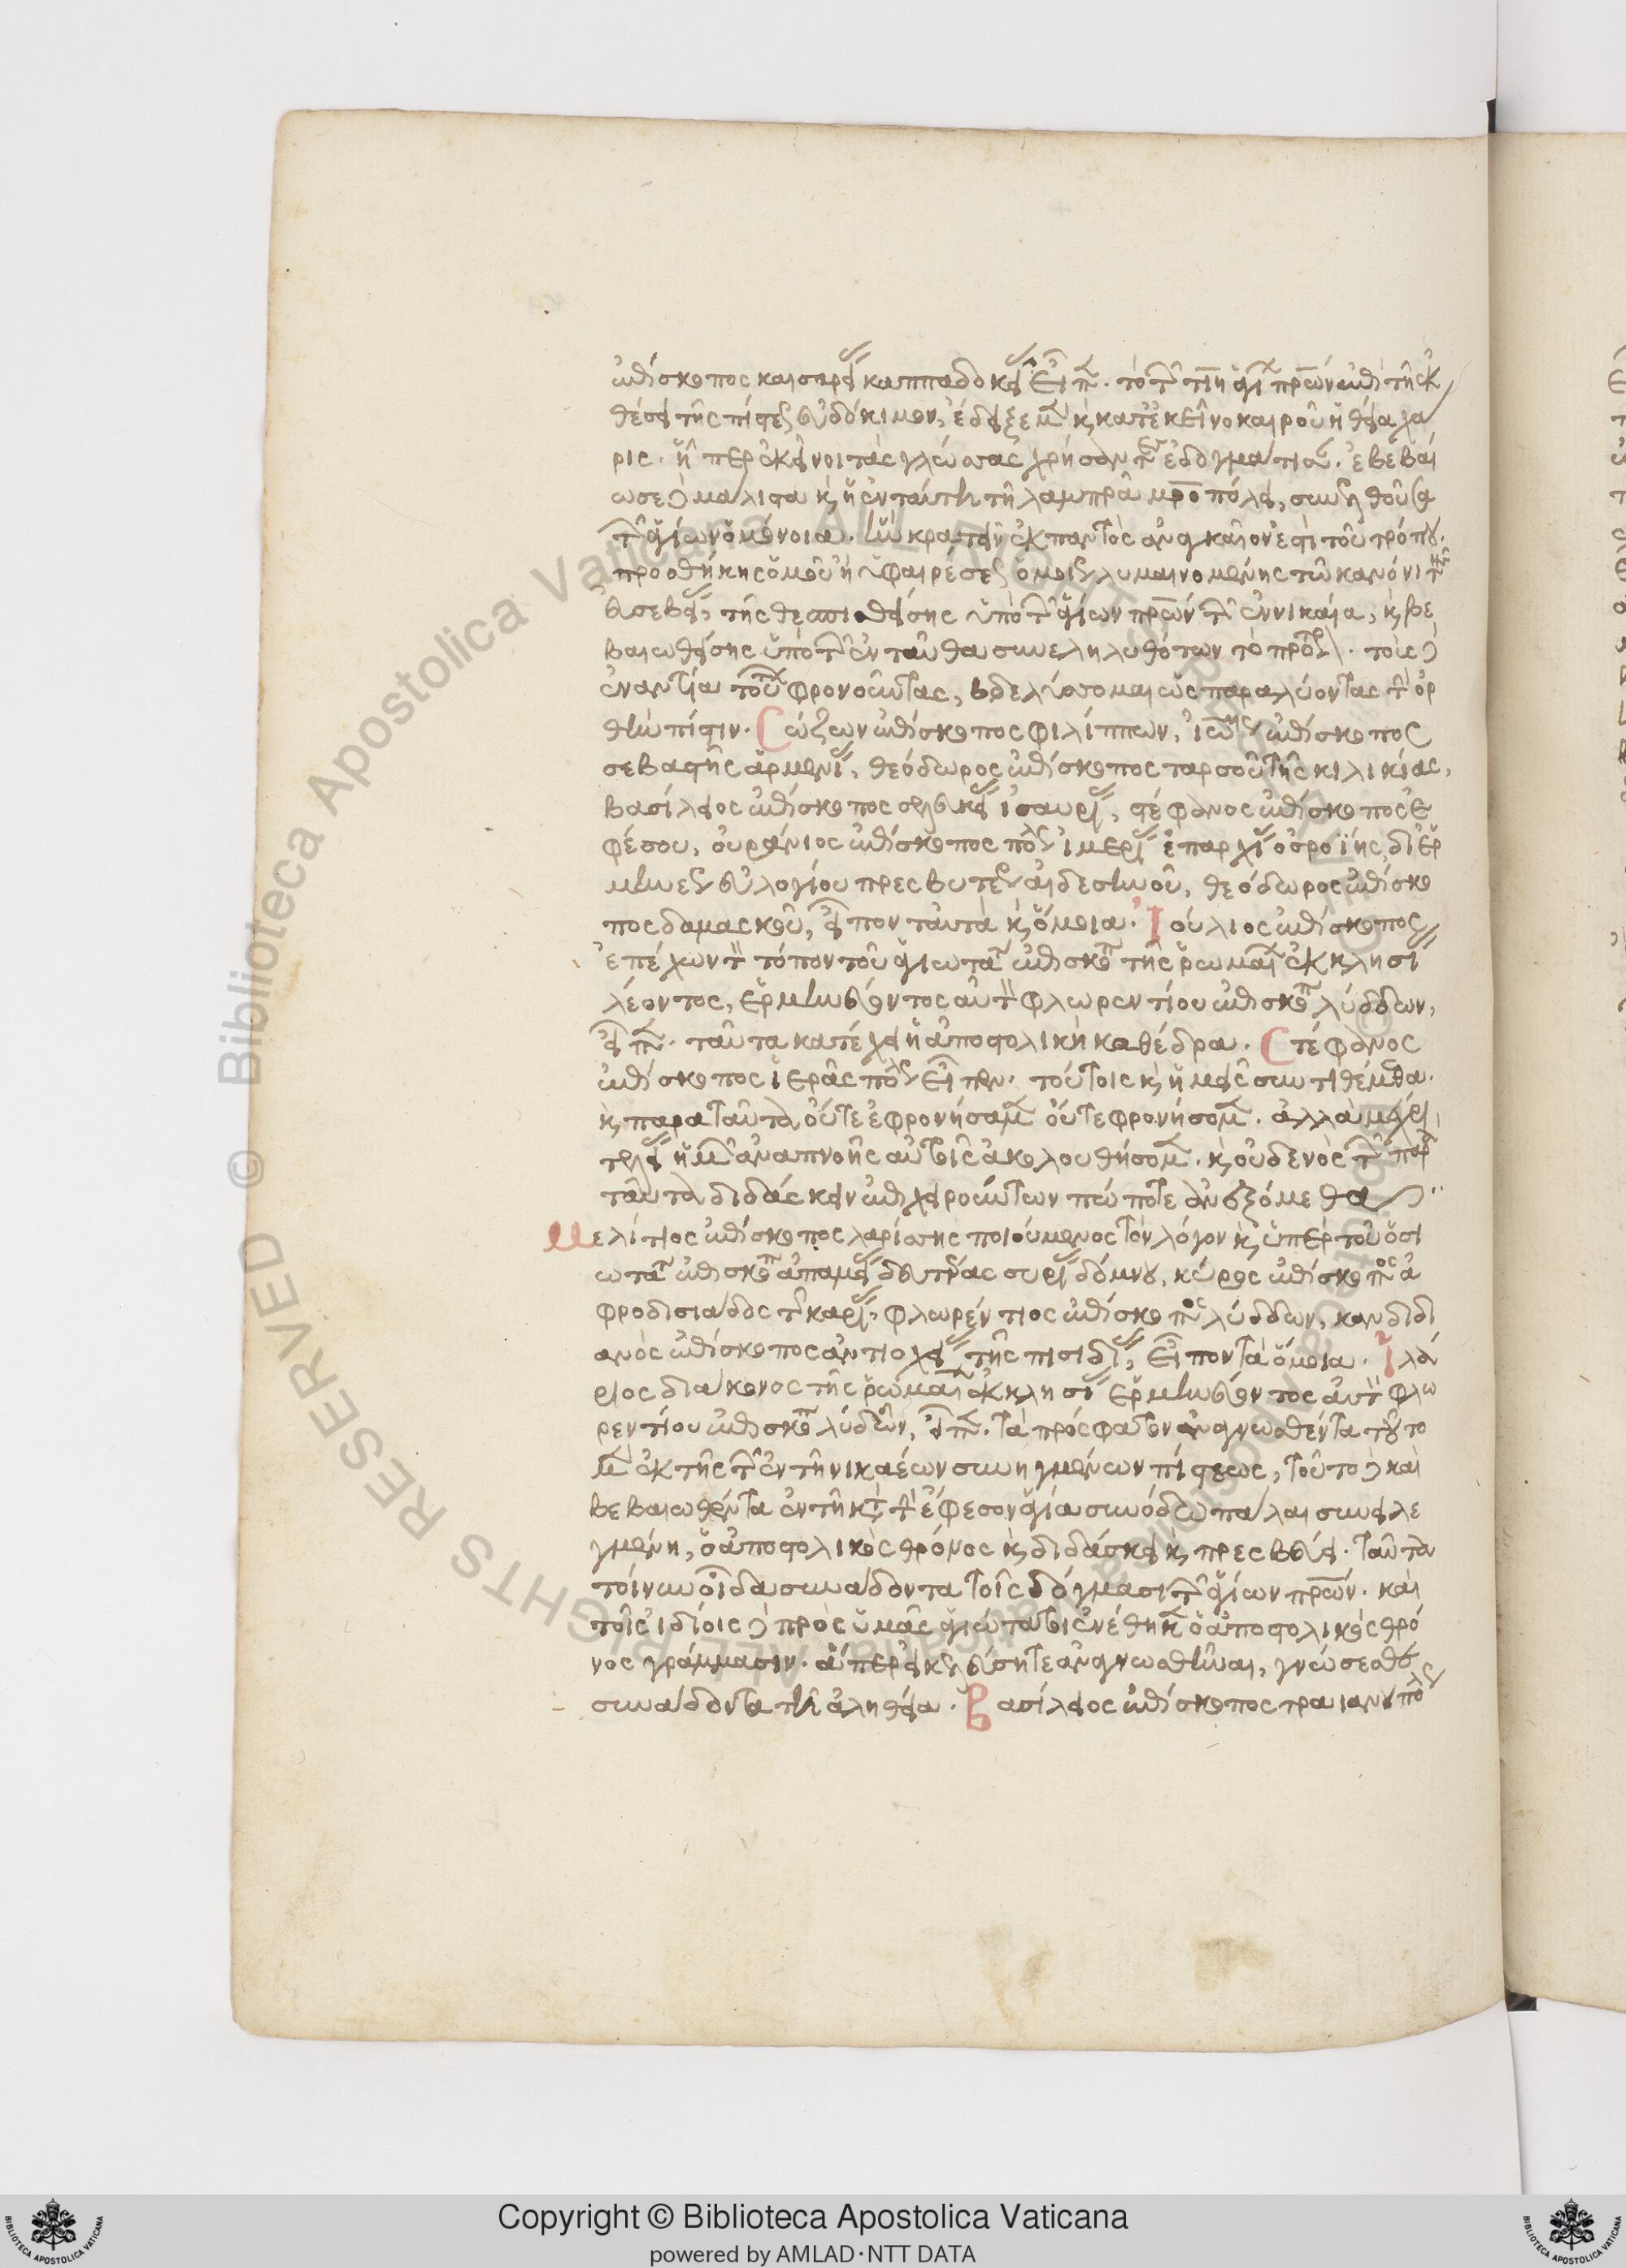 ἐπίσκοπος καισαρεί καππαδοκεί εἶπ. τὸ τῶν τιη ἁγί πρων ἐπὶ τῆ ἐκ
θέσει τῆς πίστεως εὐδόκιμον, ἔδειξε μὲν καὶ κατ' ἐκεῖνο καιροῦ ἡ θεία χά
ρις. ἥπερ ἐκείνοι τὰς γλώσσας χρήσαν τ δογματισ. ἐβεβαί
ωσε δὲ μάλιστα καὶ ἡ ἐν ταύτη τῆ λαμπρᾶ μροπόλει, συνελθοῦσα
τῶν ἁγίων ὁμόνοια. ἣν κρατεῖν ἐκ παντὸς ἀναγκαῖον ἐστὶ τοῦ τρόπου.
προσθήκης ὁμοῦ ἢ ὑφαιρέσεως ὁμοίως λυμαινομένης τῶ κανόνι τῆς
εὐσεβεί, τῆς θεσπισθείσης ὑπὸ τῶν ἁγίων πρων τῶν ἐν νικαία, καὶ βε
βαιωθείσης ὑπὸ τῶν ἐνταῦθα συνεληλυθότων τὸ πρότερον. τοὺς δὲ
ἐναντία τούτων φρονοῦντας, βδελύσσομαι ὡς παραλύοντας τὴν ὀρ
θὴν πίστιν. Σώζων ἐπίσκοπος φιλίππων, ἰωάννης ἐπίσκοπος
σεβαστῆς ἀρμενί, θεόδωρος ἐπίσκοπος ταρσοῦ τῆς κιλικίας,
βασίλειος ἐπίσκοπος σελευκεί ἰσαυρί, στέφανος ἐπίσκοπος ἐ
φέσου, οὐράνιος ἐπίσκοπος πόλεως ἱμερί ἐπαρχί ὀσροϊνῆς, δι' ἑρ
μηνέως εὐλογίου πρεσβυτέρου αἰδεσηνοῦ, θεόδωρος ἐπίσκο
πος δαμασκοῦ, εἶπον ταῦτα καὶ ὅμοια. Ἰούλιος ἐπίσκοπος
ἐπέχων τὸν τόπον τοῦ ἁγιωτά ἐπισκόπ τῆς ῥωμαί ἐκκλησί
λέοντος, ἑρμηνεύοντος αὐτὸν φλωρεντίου ἐπισκόπ λύδδων,
εἶπ. ταῦτα κατέχει ἡ ἀποστολικὴ καθέδρα. Στέφανος
ἐπίσκοπος ἱερᾶς πόλεως εἶπεν. τούτοις καὶ ἡμεῖς συντιθέμεθα.
καὶ παρὰ ταῦτα οὔτε ἐφρονήσαμεν οὔτε φρονήσομεν. ἀλλὰ μέχρι
τελευταί ἡμῶν ἀναπνοῆς αὐτοῖς ἀκολουθήσομεν. καὶ οὐδενὸς τῶν παρὰ
ταῦτα διδάσκειν ἐπιχειρούντων πώποτε ἀνεξόμεθα
Μελίτιος ἐπίσκοπος λαρίσσης ποιούμενος τὸν λόγον καὶ ὑπὲρ τοῦ ὁσι
ωτά ἐπισκόπ ἀπαμεί δευτέρας συρί δόμνου, κύρος ἐπίσκοπος ἀ
φροδισιάδος τῶν καρί, φλωρέντιος ἐπίσκοπος λύδδων, κανδιδι
ανὸς ἐπίσκοπος ἀντιοχεί τῆς πισιδί, εἶπον τὰ ὅμοια. Ἱλά
ριος διάκονος τῆς ῥωμαί ἐκκλησί ἑρμηνεύοντος αὐτὸν φλω
ρεντίου ἐπισκόπ λυδῶν, εἶπ. τὰ πρόσφατον ἀναγνωσθέντα τοῦτο
μὲν ἐκ τῆς τῶν ἐν τῆ νικαέων συνηγμένων πίστεως, τοῦτο δὲ καὶ
βεβαιωθέντα ἐν τῆ κατὰ τὴν ἔφεσον ἁγία συνόδω πάλαι συνειλε
γμένη, ὁ ἀποστολικὸς θρόνος καὶ διδάσκει καὶ πρεσβεύει. ταῦτα
τοίνυν οἶδα συνάδοντα τοῖς δόγμασι τῶν ἁγίων πρων. καὶ
τοῖς ἰδίοις δὲ πρὸς ὑμᾶς ἁγιώτατοι ἐνέθηκεν ὁ ἀποστολικὸς θρό
νος γράμμασιν. ἅπερ εἰ κελεύσητε ἀναγνωσθῆναι, γνώσεσθε
συνάδοντα τῆ ἀληθεία. Βασίλειος ἐπίσκοπος τραιανουπόλεως
Copyright © Biblioteca Apostolica Vaticana
powered by AMLAD·NTT DATA